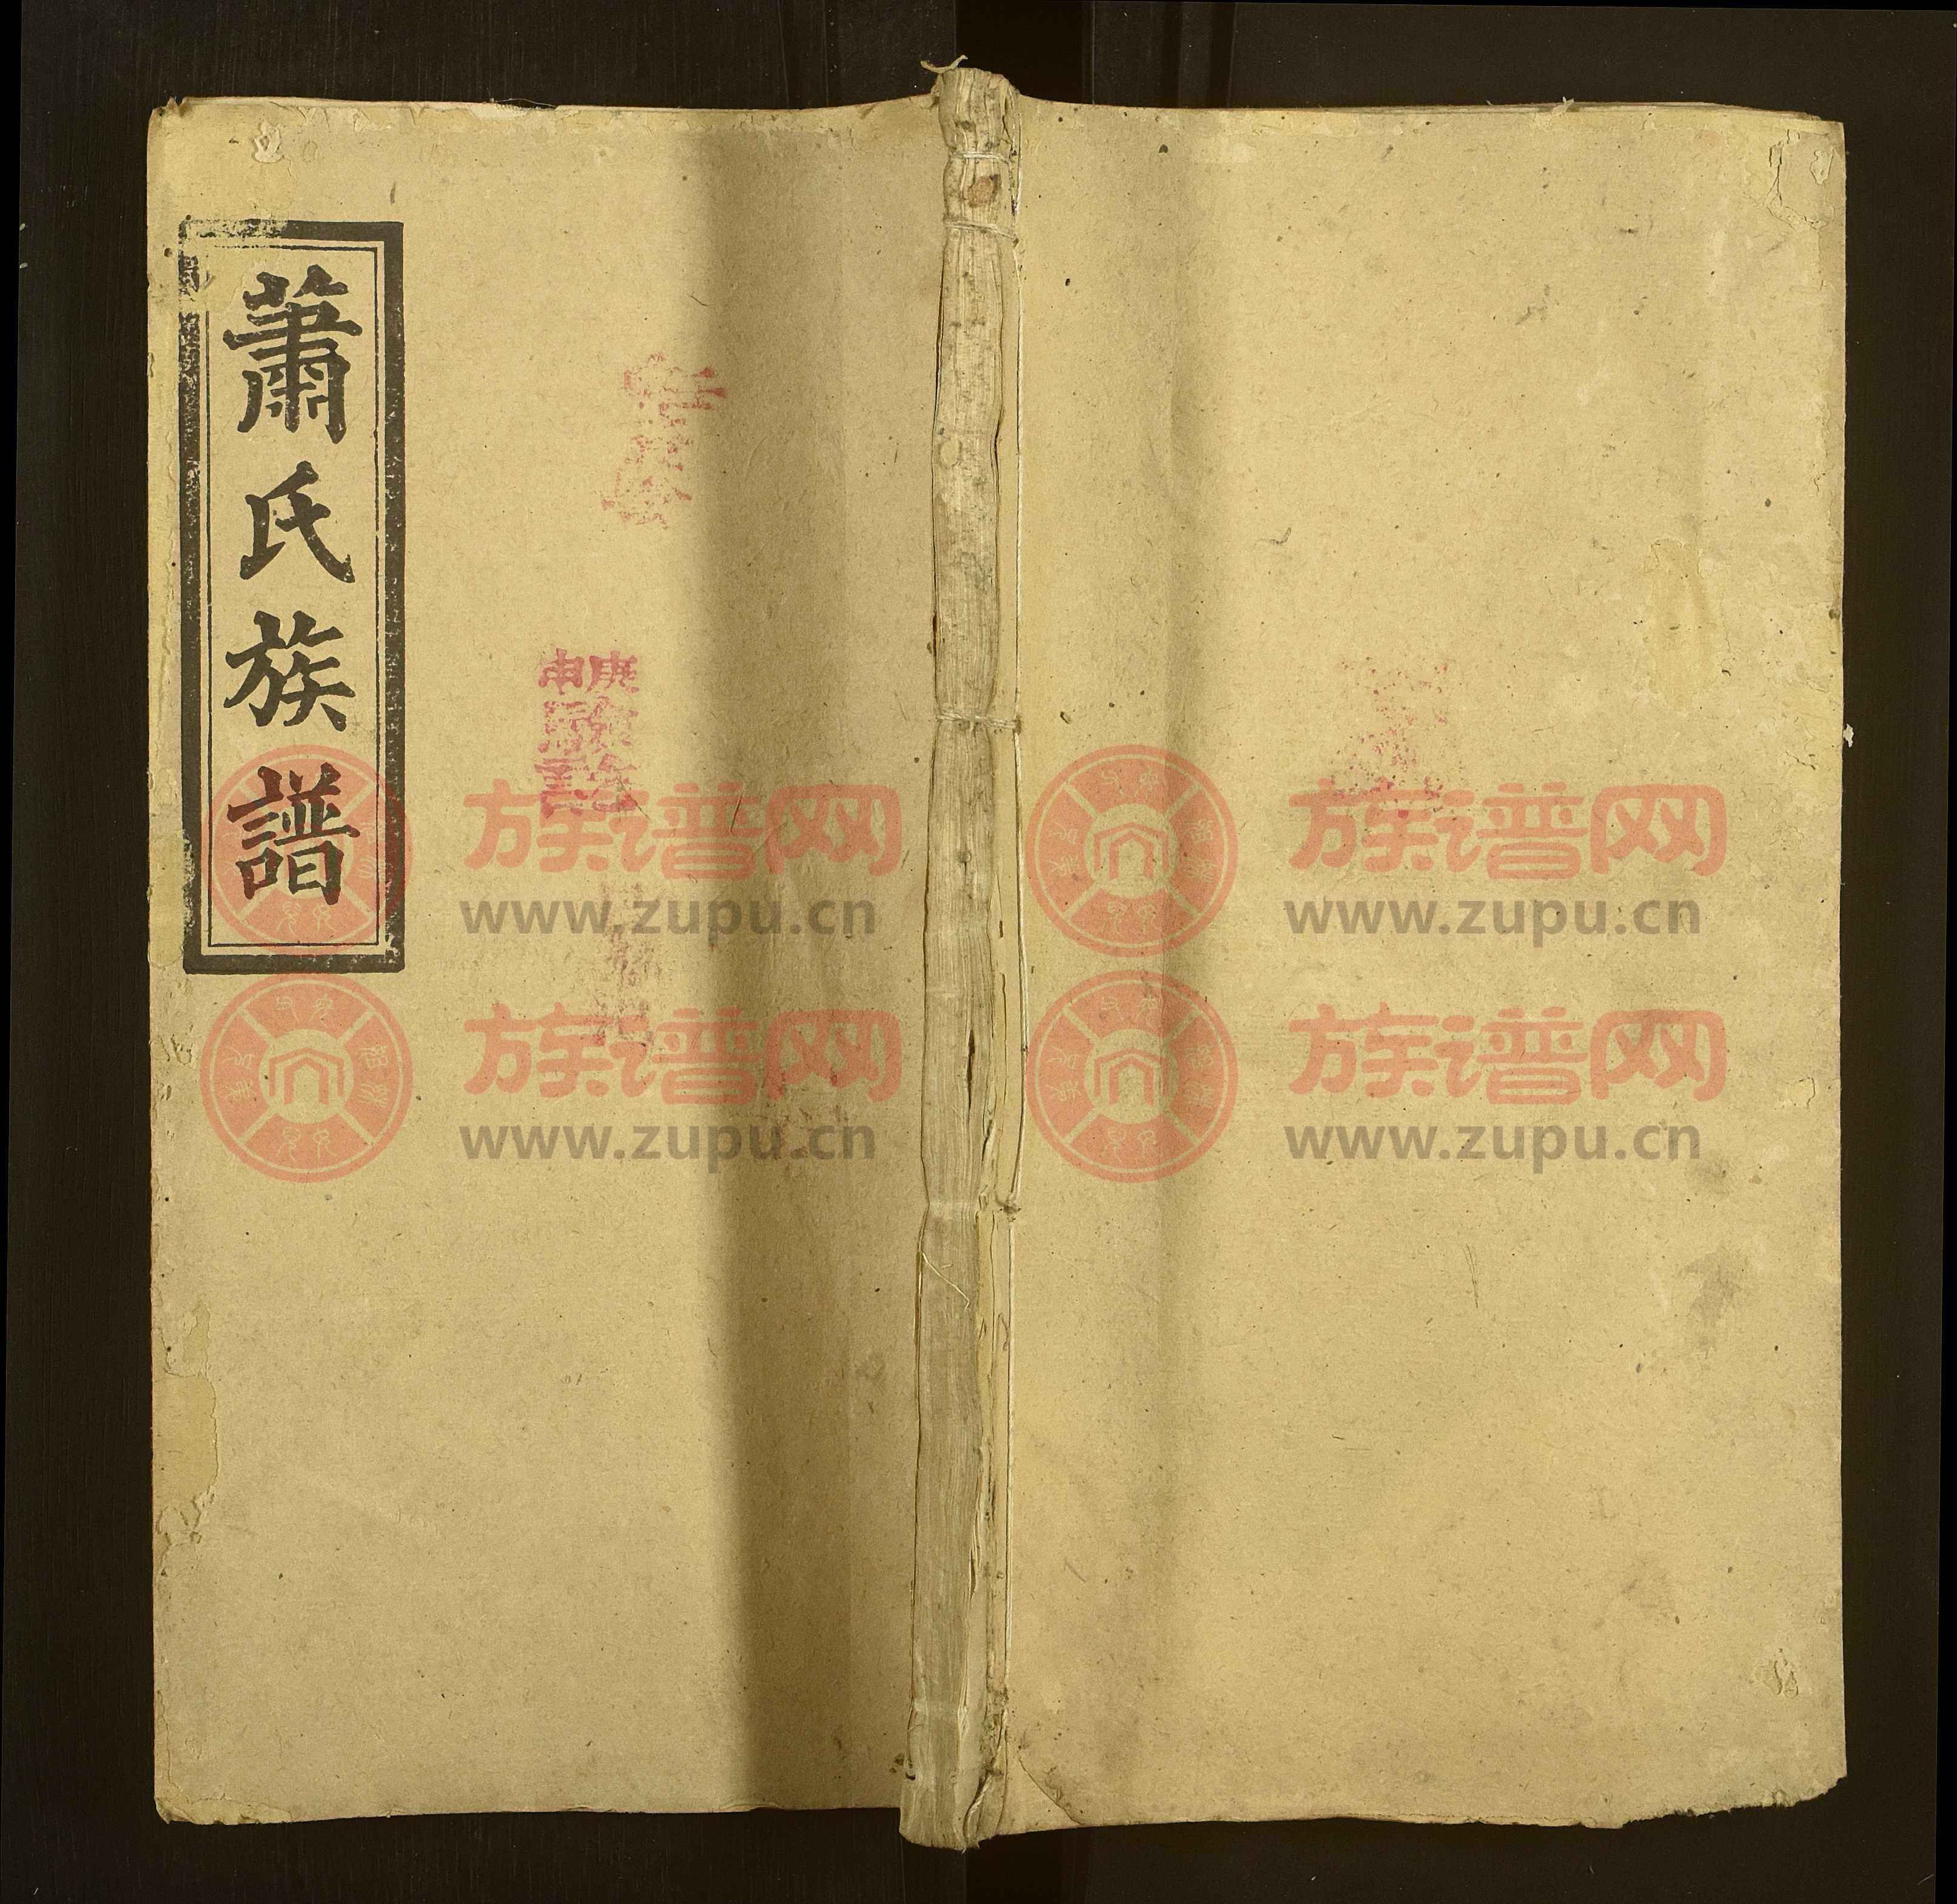 蕭氏族譜
庚申
族谱网
www.zupu.cn
族谱网
www.zupu.cn
族谱网
www.zupu.cn
族谱网
www.zupu.cn